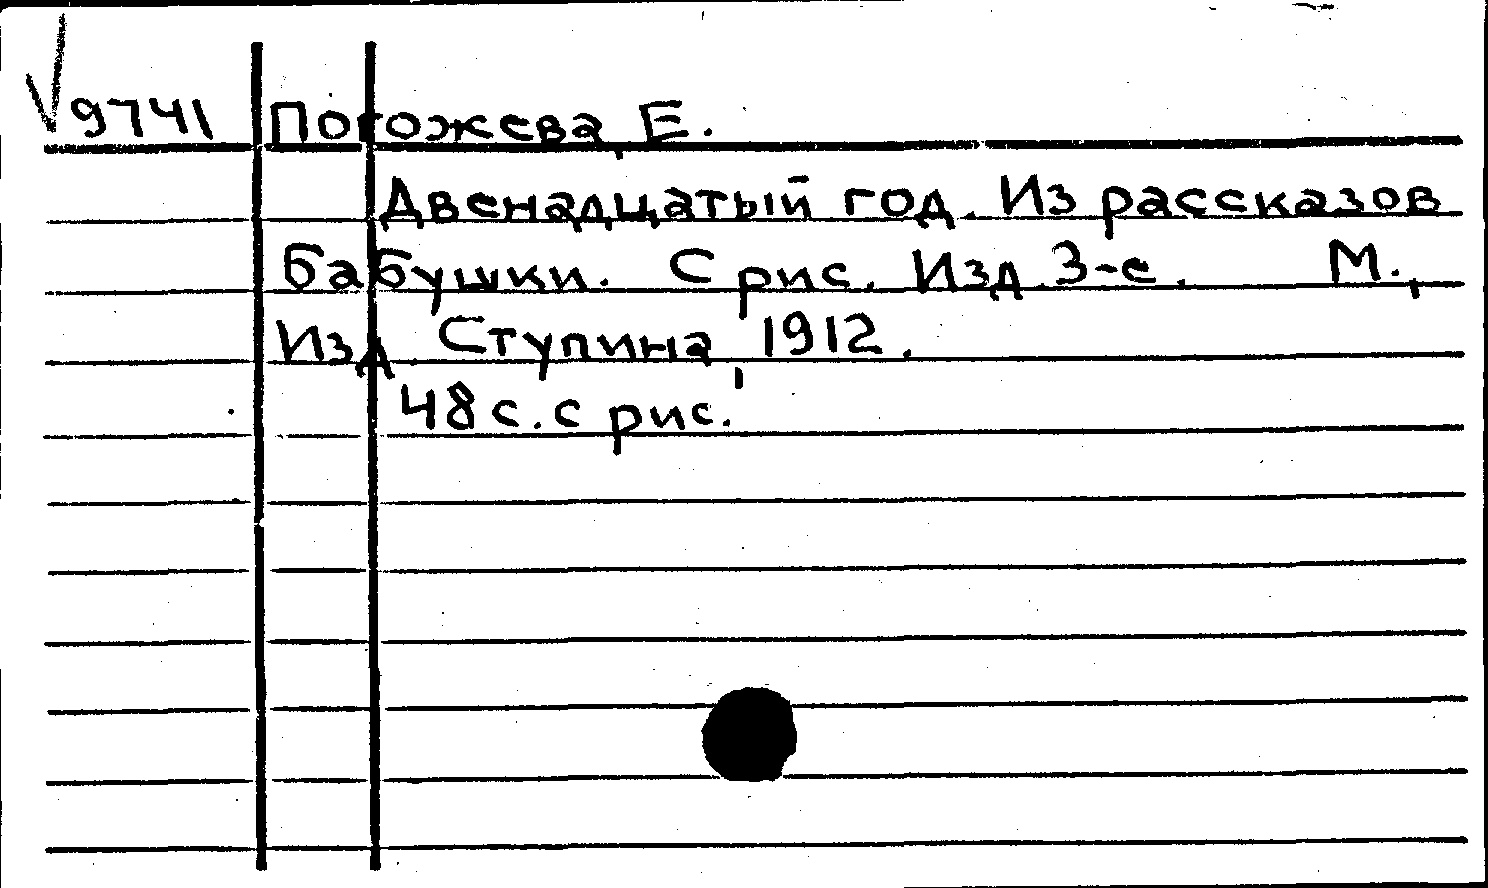 9741 Погожева, Е.
Двенадцатый год. Из рассказов
бабушки. С рис. Изд. 3-е. М.,
Изд Ступина, 1912.
48 с. с рис.